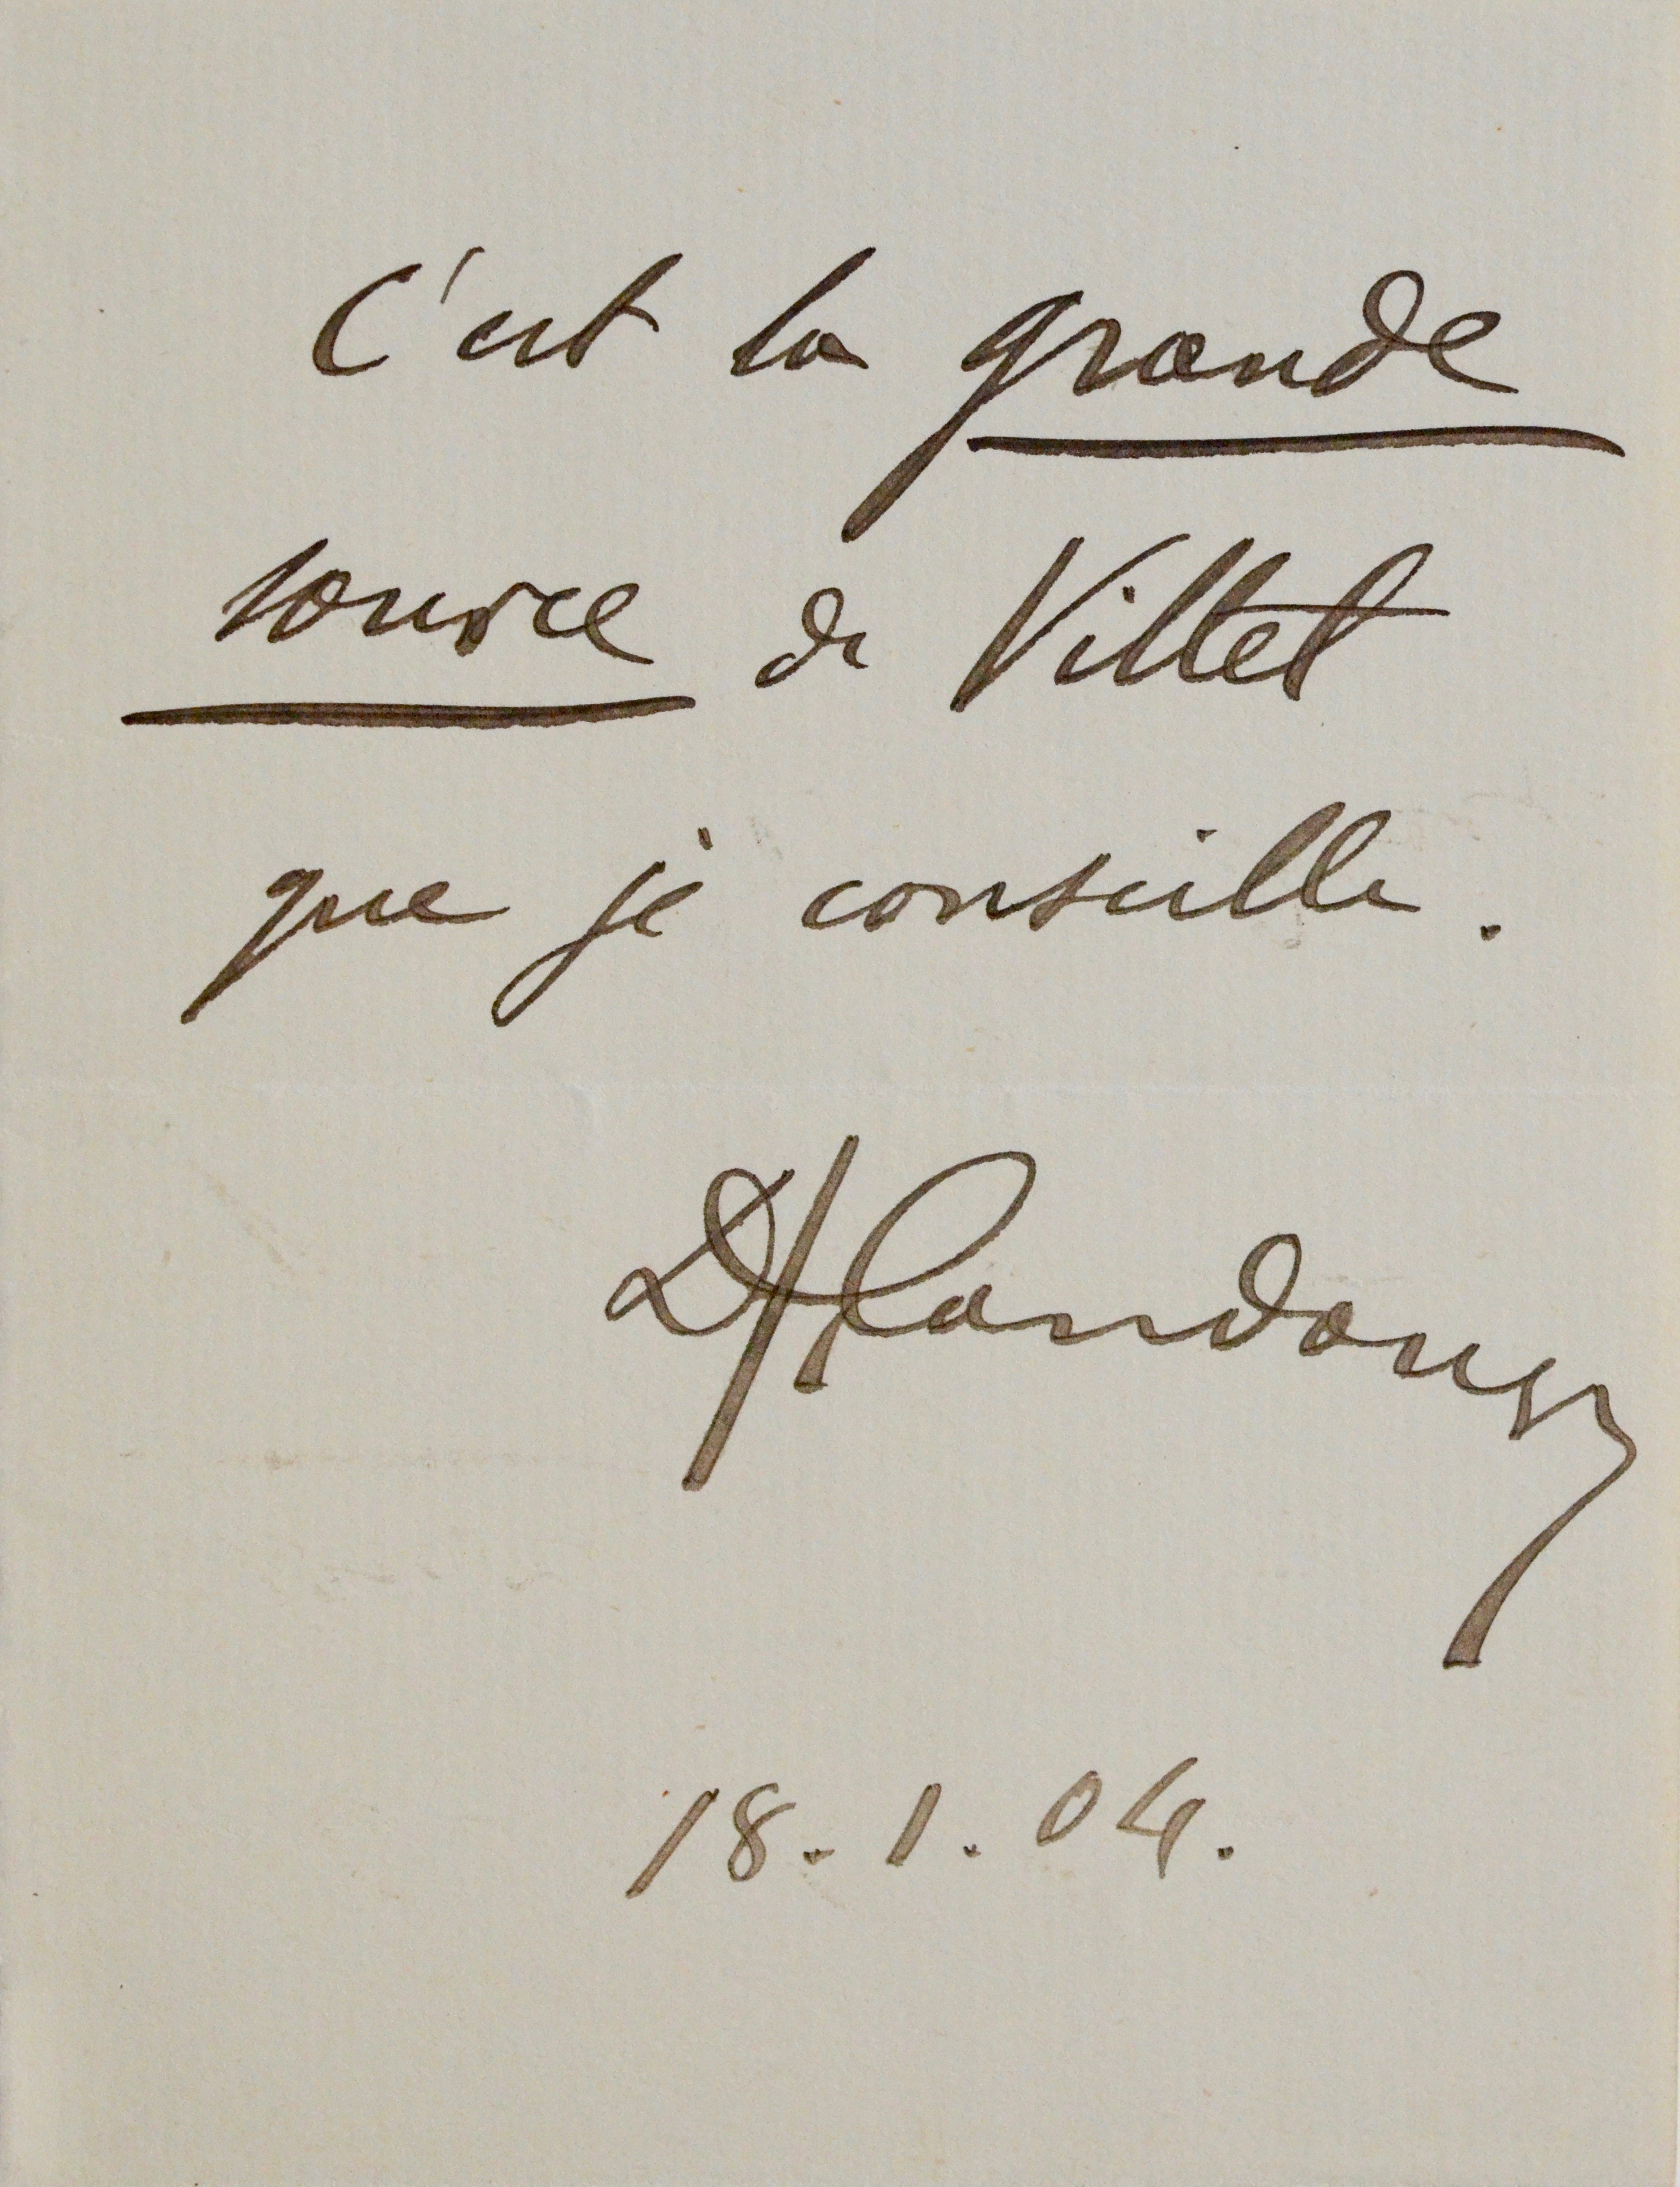 C'est la grande
source de Vittel
que je conseille.
DrLandouzy
18.1.04.